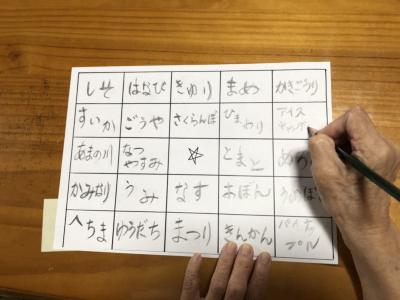 しそ
はなび
きゅうり
まめ
かきごうり
すいか
ごうや
さくらんぼ
ひまわり
アイス
キャンデー
あまの川
なつ
やすみ
☆
とまと
かみなり
うみ
なす
おぼん
へちま
ゆうだち
まつり
きんかん